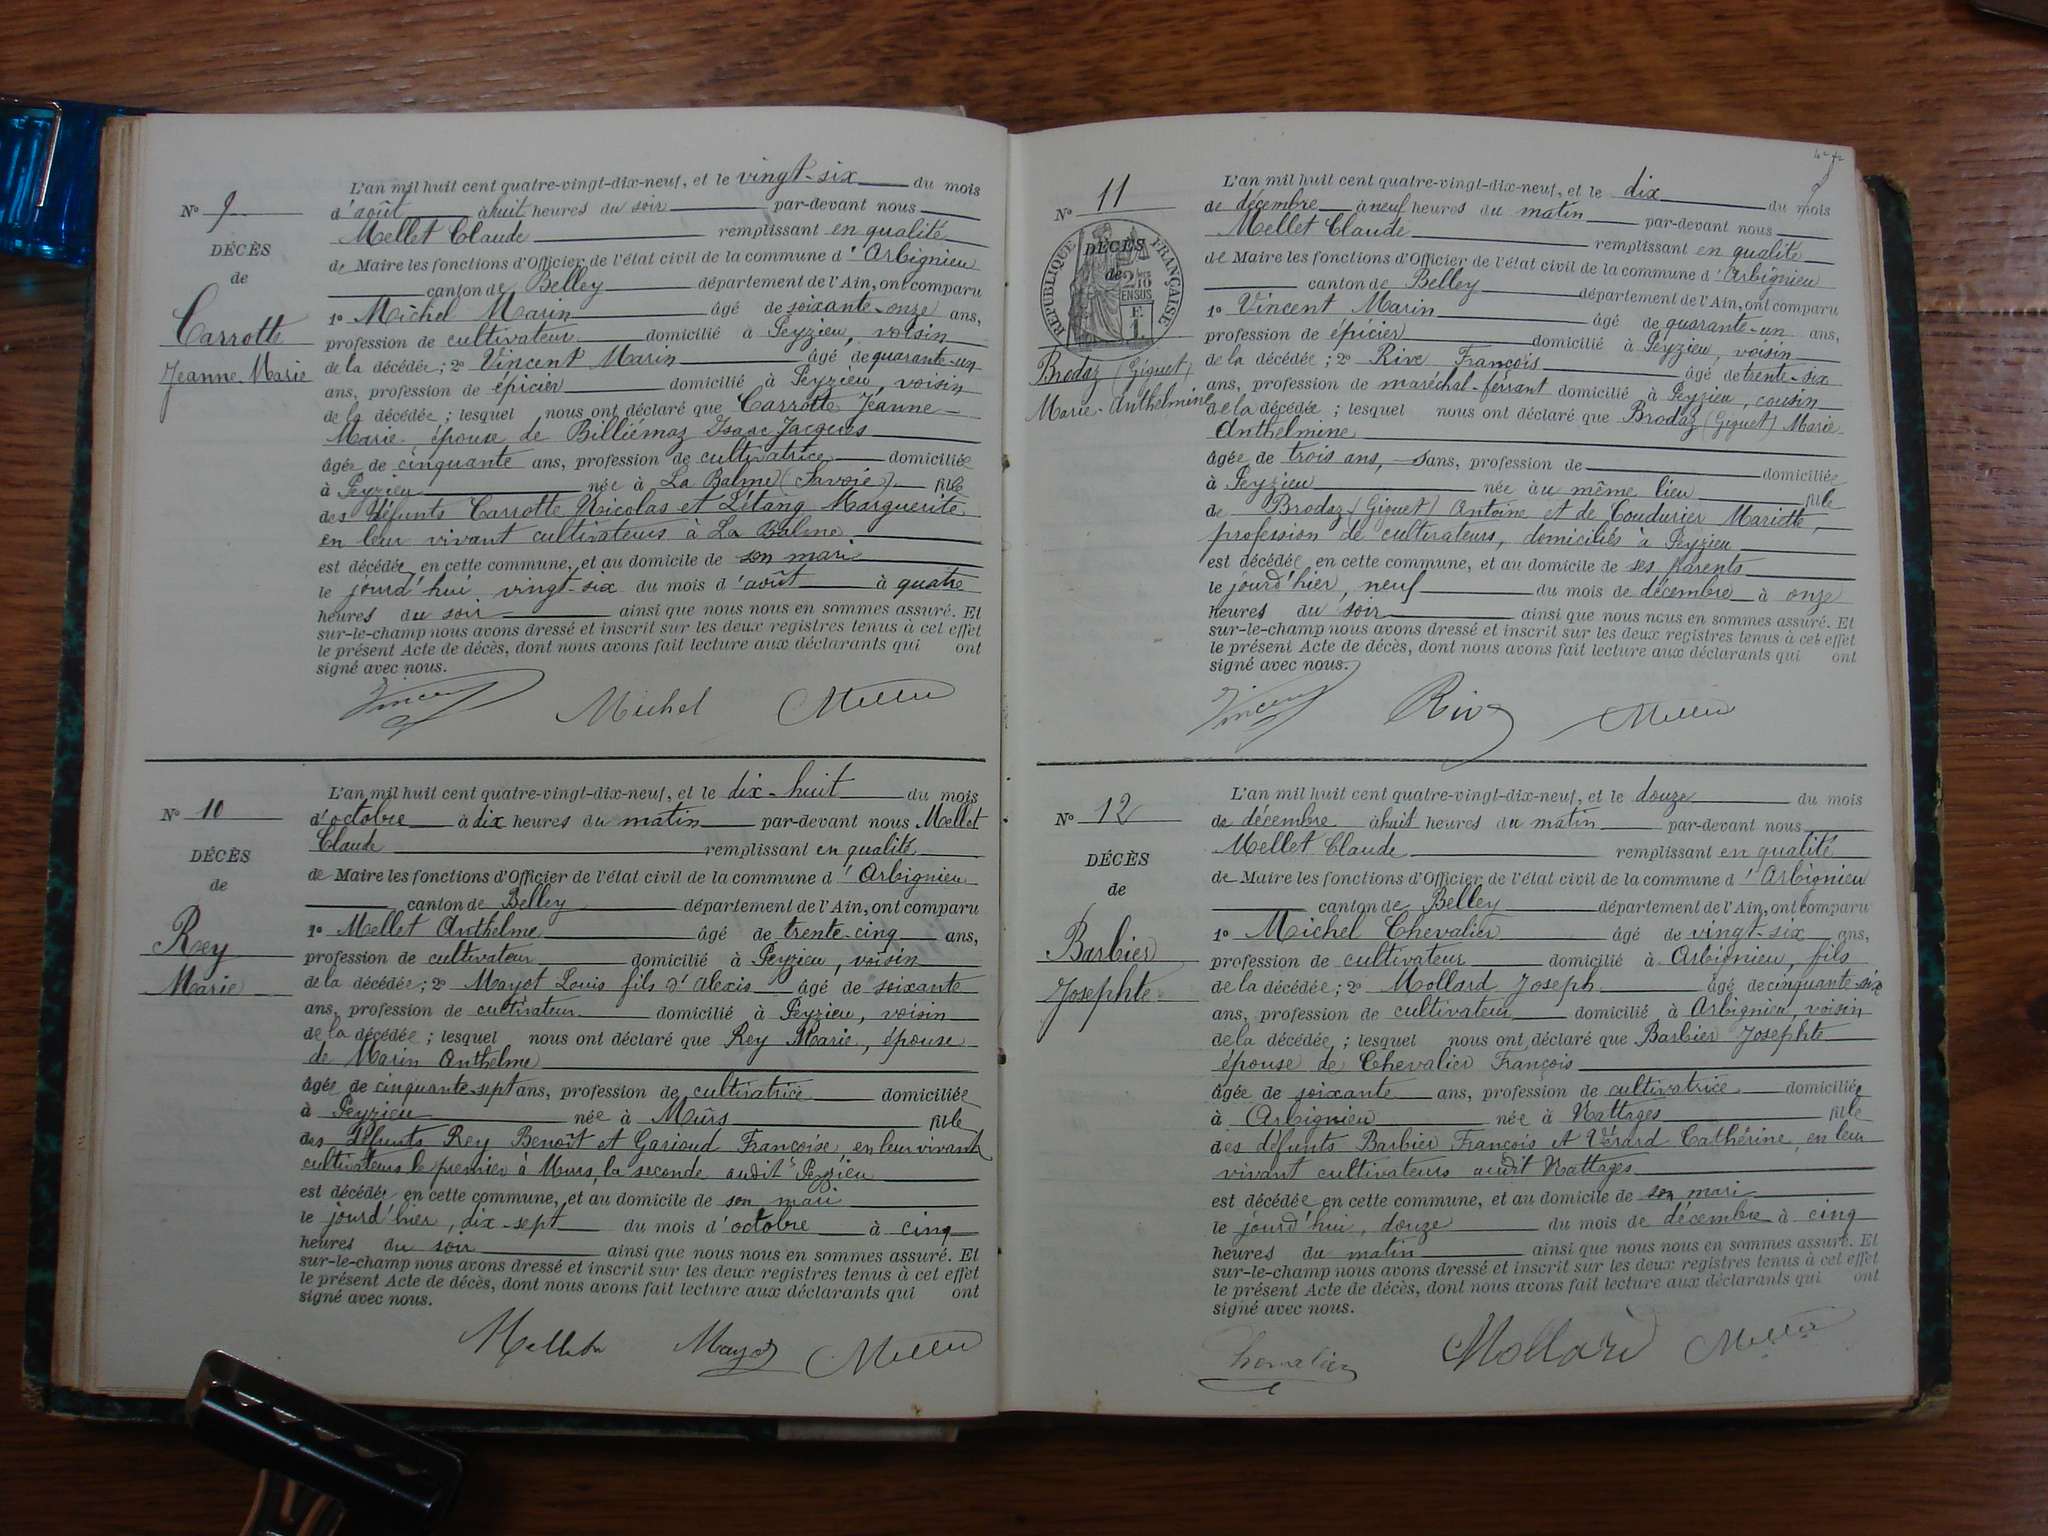 L'an mil huit cent quatre-vingt-dix-neuf, et le vingt-six du mois
N° 9 d'août à huit heures du soir par-devant nous
Mellet Claude remplissant en qualité
DÉCÈS
de Maire les fonctions d'Officier de l'état civil de la commune d'Arbignieu
de
canton de Belley département de l'Ain, ont comparu
1° Michel Marin âgé de soixante-onze ans,
Carrotte
profession de cultivateur domicilié à Peyzieu, voisin
de la décédée; 2° Vincent Marin âgé de quarante-un
Jeanne-Marie
ans, profession de épicier domicilié à Peyzieu, voisin
de la décédée; lesquel nous ont déclaré que Carrotte Jeanne-
Marie, épouse de Billiémaz Isaac Jacques
âgée de cinquante ans, profession de cultivatrice domiciliée
à Peyzieu née à La Balme (Savoie) fille
des défunts Carrotte Nicolas et Létang Marguerite
en leur vivant cultivateurs à La Balme
est décédée en cette commune, et au domicile de son mari
le jourd'hui vingt-six du mois d'août à quatre
heures du soir ainsi que nous nous en sommes assuré. Et
sur-le-champ nous avons dressé et inscrit sur les deux registres tenus à cet effet
le présent Acte de décès, dont nous avons fait lecture aux déclarants qui ont
signé avec nous.
Vincent Michel Mellet
L'an mil huit cent quatre-vingt-dix-neuf, et le dix-huit du mois
N° 10 d'octobre à dix heures du matin par-devant nous Mellet
Claude remplissant en qualité
DÉCÈS
de Maire les fonctions d'Officier de l'état civil de la commune d'Arbignieu
de
canton de Belley département de l'Ain, ont comparu
1° Mellet Anthelme âgé de trente-cinq ans,
Rey
profession de cultivateur domicilié à Peyzieu, voisin
Marie
de la décédée; 2° Mayot Louis fils d'Alexis âgé de soixante
ans, profession de cultivateur domicilié à Peyzieu, voisin
de la décédée; lesquel nous ont déclaré que Rey Marie, épouse
de Marin Anthelme
âgée de cinquante-sept ans, profession de cultivatrice domiciliée
à Peyzieu née à Mûrs fille
des défunts Rey Benoît et Garioud Françoise en leur vivant
cultivateurs le premier à Murs, la seconde audit Peyzieu
est décédée en cette commune, et au domicile de son mari
le jourd'hier, dix-sept du mois d'octobre à cinq
heures du soir ainsi que nous nous en sommes assuré. Et
sur-le-champ nous avons dressé et inscrit sur les deux registres tenus à cet effet
le présent Acte de décès, dont nous avons fait lecture aux déclarants qui ont
signé avec nous.
Mellet Mayot Mellet
L'an mil huit cent quatre-vingt-dix-neuf, et le dix du mois
N° 11 de décembre à neuf heures du matin par-devant nous
Mellet Claude remplissant en qualité
DÉCÈS
de Maire les fonctions d'Officier de l'état civil de la commune d'Arbignieu
de
RÉPUBLIQUE FRANÇAISE
2/10 EN SUS
F. 1.
canton de Belley département de l'Ain, ont comparu
1° Vincent Marin âgé de quarante-un ans,
profession de épicier domicilié à Peyzieu, voisin
Brodaz (Giguet)
de la décédée; 2° Rive François âgé de trente-six
ans, profession de maréchal-ferrant domicilié à Peyzieu, cousin
Marie-Anthelmine
de la décédée; lesquel nous ont déclaré que Brodaz (Giguet) Marie-
Anthelmine
âgée de trois ans, sans, profession de domiciliée
à Peyzieu née au même lieu fille
de Brodaz (Giguet) Antoine et de Coudurier Mariette,
profession de cultivateurs, domiciliés à Peyzieu
est décédée en cette commune, et au domicile de ses parents
le jourd'hier, neuf du mois de décembre à onze
heures du soir ainsi que nous nous en sommes assuré. Et
sur-le-champ nous avons dressé et inscrit sur les deux registres tenus à cet effet
le présent Acte de décès, dont nous avons fait lecture aux déclarants qui ont
signé avec nous.
Vincent Rive Mellet
L'an mil huit cent quatre-vingt-dix-neuf, et le douze du mois
N° 12 de décembre à huit heures du matin par-devant nous
Mellet Claude remplissant en qualité
DÉCÈS
de Maire les fonctions d'Officier de l'état civil de la commune d'Arbignieu
de
canton de Belley département de l'Ain, ont comparu
1° Michel Chevalier âgé de vingt-six ans,
Barbier
profession de cultivateur domicilié à Arbignieu, fils
Josephte
de la décédée; 2° Mollard Joseph âgé de cinquante-six
ans, profession de cultivateur domicilié à Arbignieu, voisin
de la décédée; lesquel nous ont déclaré que Barbier Josephte
épouse de Chevalier François
âgée de soixante ans, profession de cultivatrice domiciliée
à Arbignieu née à Nattages fille
des défunts Barbier François et Vérard Cathérine, en leur
vivant cultivateurs audit Nattages
est décédée en cette commune, et au domicile de son mari
le jourd'hui, douze du mois de décembre à cinq
heures du matin ainsi que nous nous en sommes assuré. Et
sur-le-champ nous avons dressé et inscrit sur les deux registres tenus à cet effet
le présent Acte de décès, dont nous avons fait lecture aux déclarants qui ont
signé avec nous.
Chevalier Mollard Mellet